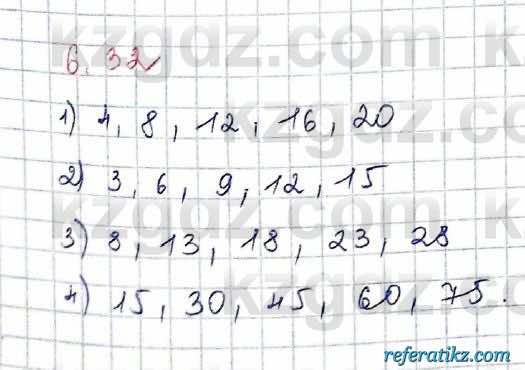 kzgdz.com
6.32
1) 4, 8, 12, 16, 20
2) 3, 6, 9, 12, 15
3) 8, 13, 18, 23, 28
4) 15, 30, 45, 60, 75.
referatikz.com